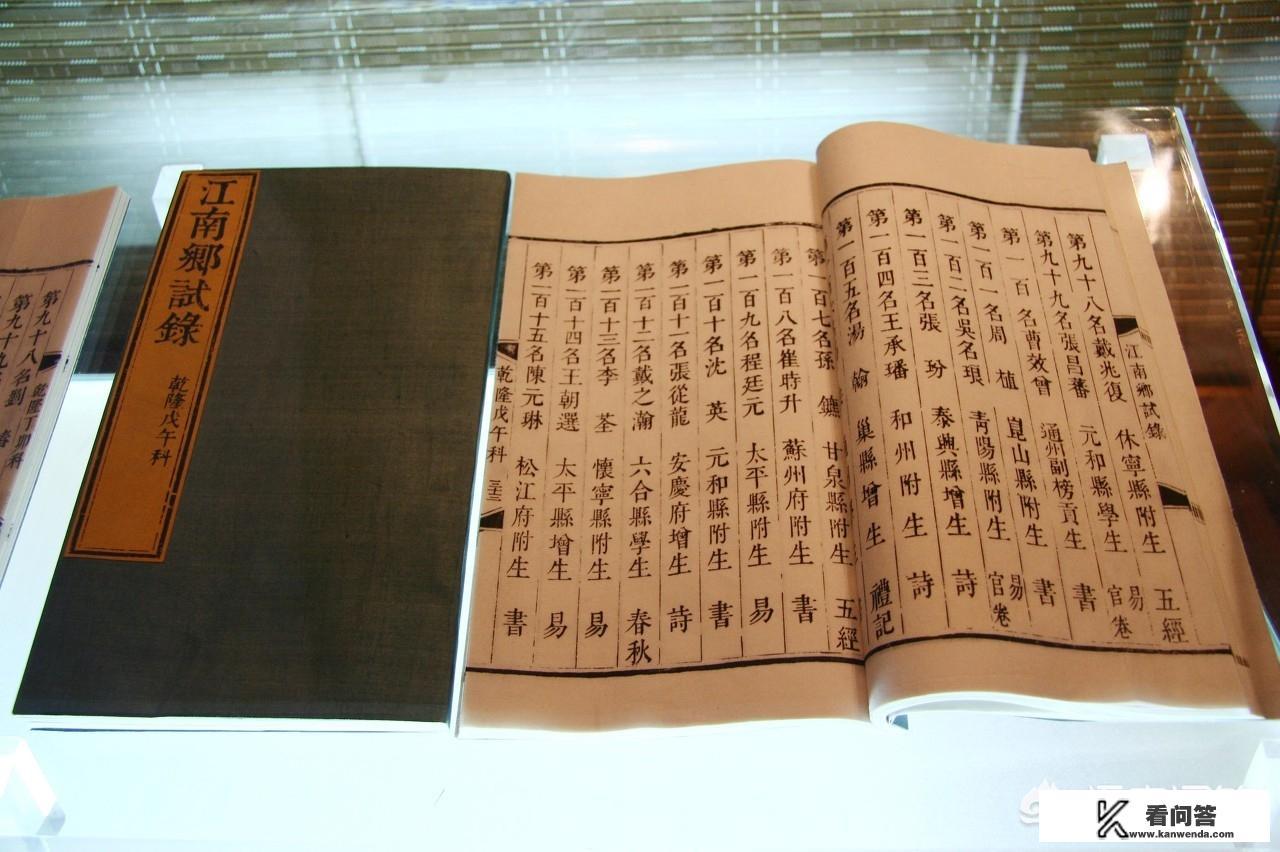 乾隆丁卯科
第九十八名劉
第九十九
江南鄉試錄
乾隆戊午科
江南鄉試錄
第九十八名戴兆復 休寧縣附生 五經
第九十九名張昌藩 元和縣學生 易官卷
第一百名曹效曾 通州副榜貢生 書
第一百一名周植 崑山縣附生 書
第一百二名吳名琅 青陽縣附生 易官卷
第一百三名張玢 泰興縣增生 詩
第一百四名王承璠 和州附生 詩
第一百五名湯翰 巢縣增生 禮記
第一百七名孫鑣 甘泉縣附生 五經
第一百八名崔時升 蘇州府附生 書
第一百九名程廷元 太平縣附生 易
第一百十名沈英 元和縣附生 書
第一百十一名張從龍 安慶府增生 詩
第一百十二名戴之瀚 六合縣學生 春秋
第一百十三名李荃 懷寧縣附生 易
第一百十四名王朝選 太平縣增生 易
第一百十五名陳元琳 松江府附生 書
乾隆戊午科
看问答
www.kanwenda.com